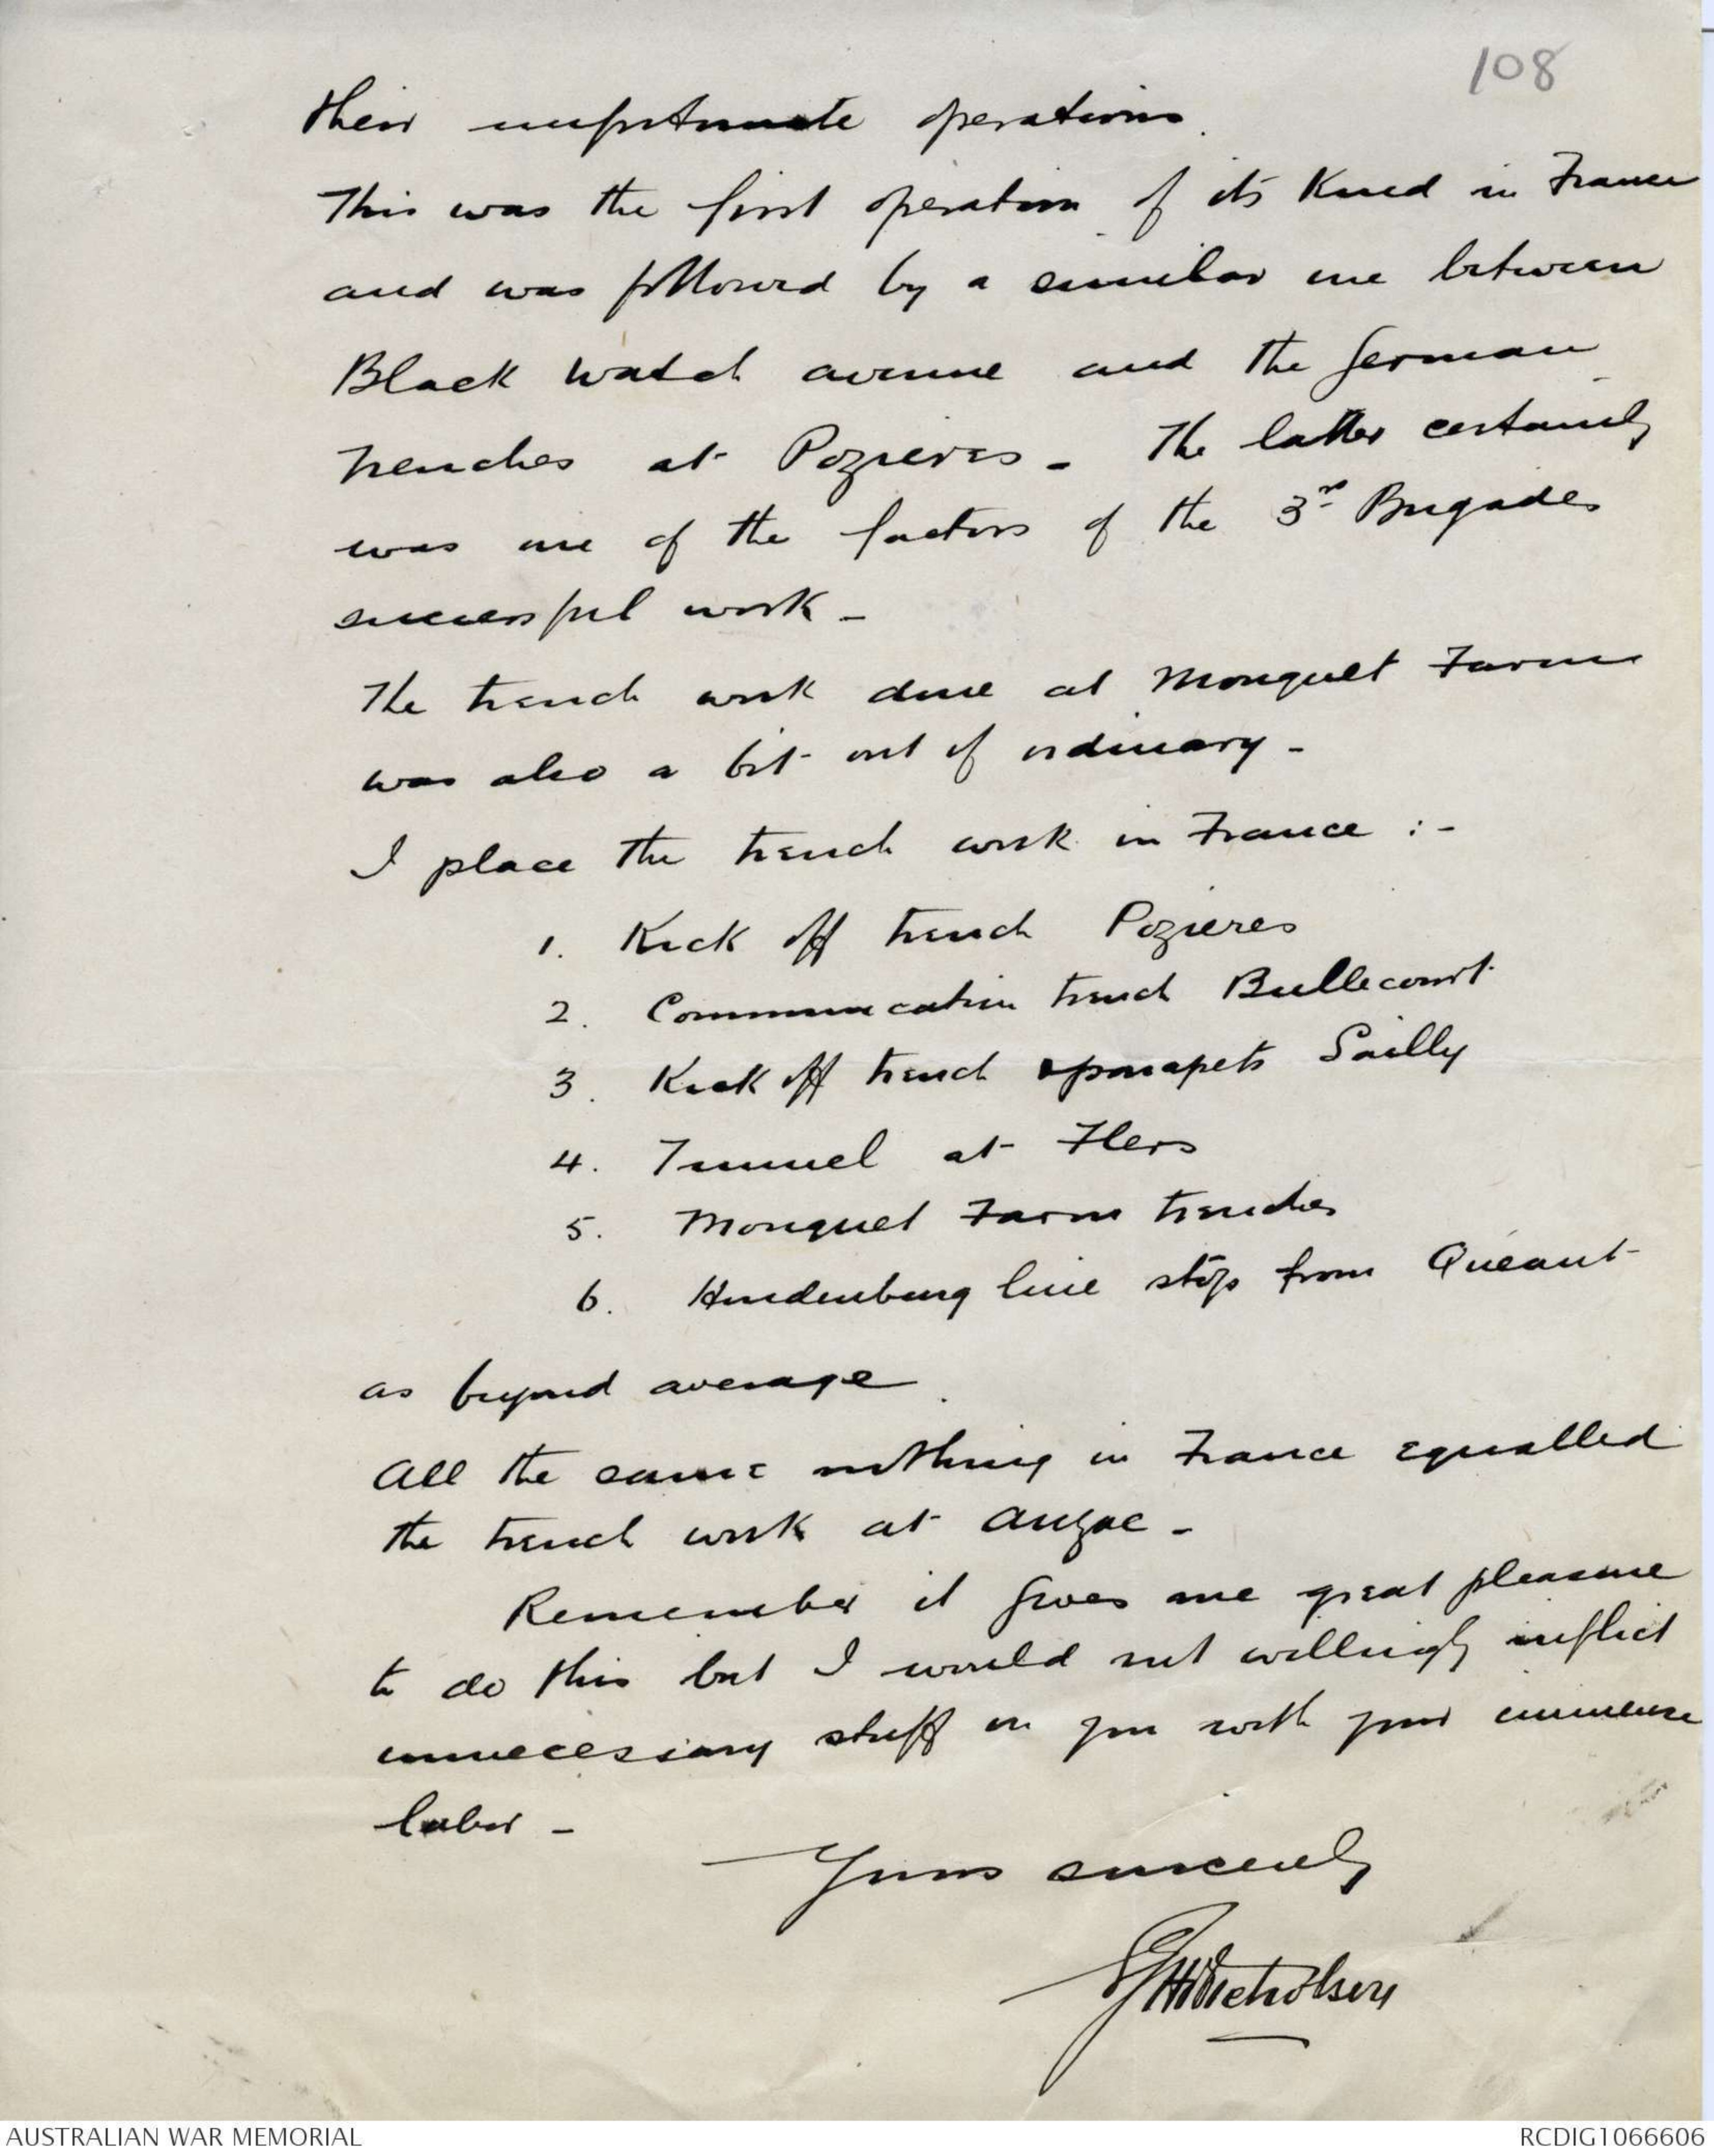 108
their unfortunate operations.
This was the first operation of its kind in France
and was followed by a similar one between
Black Watch avenue and the German
trenches at Pozieres - The latter certainly
was one of the factors of the 3rd Brigades
successful work -
The trench work done at Mouquet Farm
was also a bit out of ordinary -
I place the trench work in France :-
1. Kick off trench Pozieres
2. Communication trench Bullecourt
3. Kick off trench parapets Sailly
4. Tunnel at Flers
5. Mouquet Farm trenches
6. Hindenburg line stop from Queant
as beyond average.
All the same nothing in France equalled
the trench work at Anzac -
Remember it gives me great pleasure
to do this but I would not willingly inflict
unnecessary stuff on you with your immense
labor -
Yours sincerely
Nicholson
AUSTRALIAN WAR MEMORIAL
RCDIG1066606